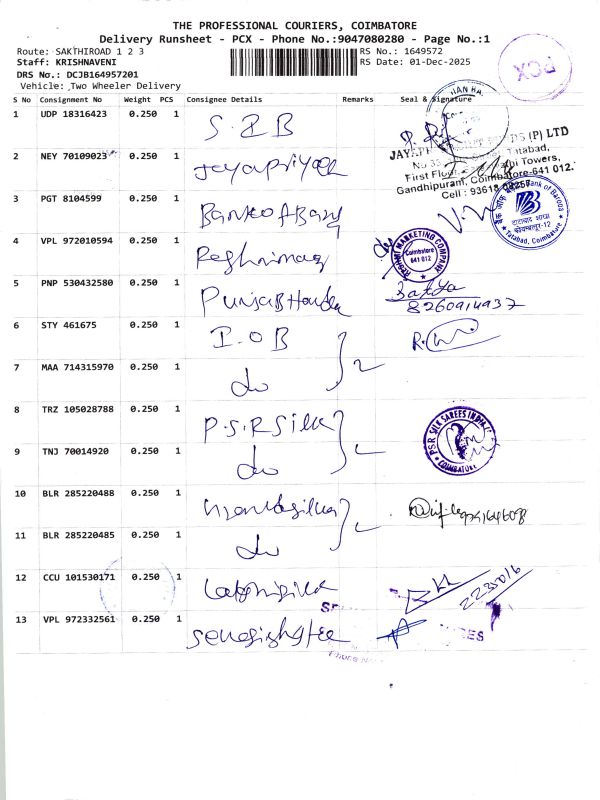 THE PROFESSIONAL COURIERS, COIMBATORE
Delivery Runsheet - PCX - Phone No.:9047080280 - Page No.:1
Route: SAKTHIROAD 1 2 3
RS No.: 1649572
Staff: KRISHNAVENI
RS Date: 01-Dec-2025
DRS No.: DCJB164957201
Vehicle: Two Wheeler Delivery
PCX
S No Consignment No Weight PCS Consignee Details Remarks Seal & Signature
1 UDP 18316423 0.250 1 S.I.B
2 NEY 70109023 0.250 1 Jayapriya
JAYAPRIYA (P) LTD
No 33, Tatabad,
First Floor, Towers,
Gandhipuram, Coimbatore-641 012.
Cell : 93618
3 PGT 8104599 0.250 1 Bank of Baroda
Bank of Baroda
टाटाबाद शाखा
कोयम्बतूर-12
Tatabad, Coimbatore
4 VPL 972010594 0.250 1
MARKETING COMPANY
Coimbatore
641 012
5 PNP 530432580 0.250 1 Punjab Honda
8260914937
6 STY 461675 0.250 1 I.O.B
7 MAA 714315970 0.250 1 do 2
8 TRZ 105028788 0.250 1 P.S.R Silk
PSR SILK SAREES INDIA
COIMBATORE
9 TNJ 70014920 0.250 1 do
10 BLR 285220488 0.250 1
11 BLR 285220485 0.250 1 do
12 CCU 101530171 0.250 1
13 VPL 972332561 0.250 1